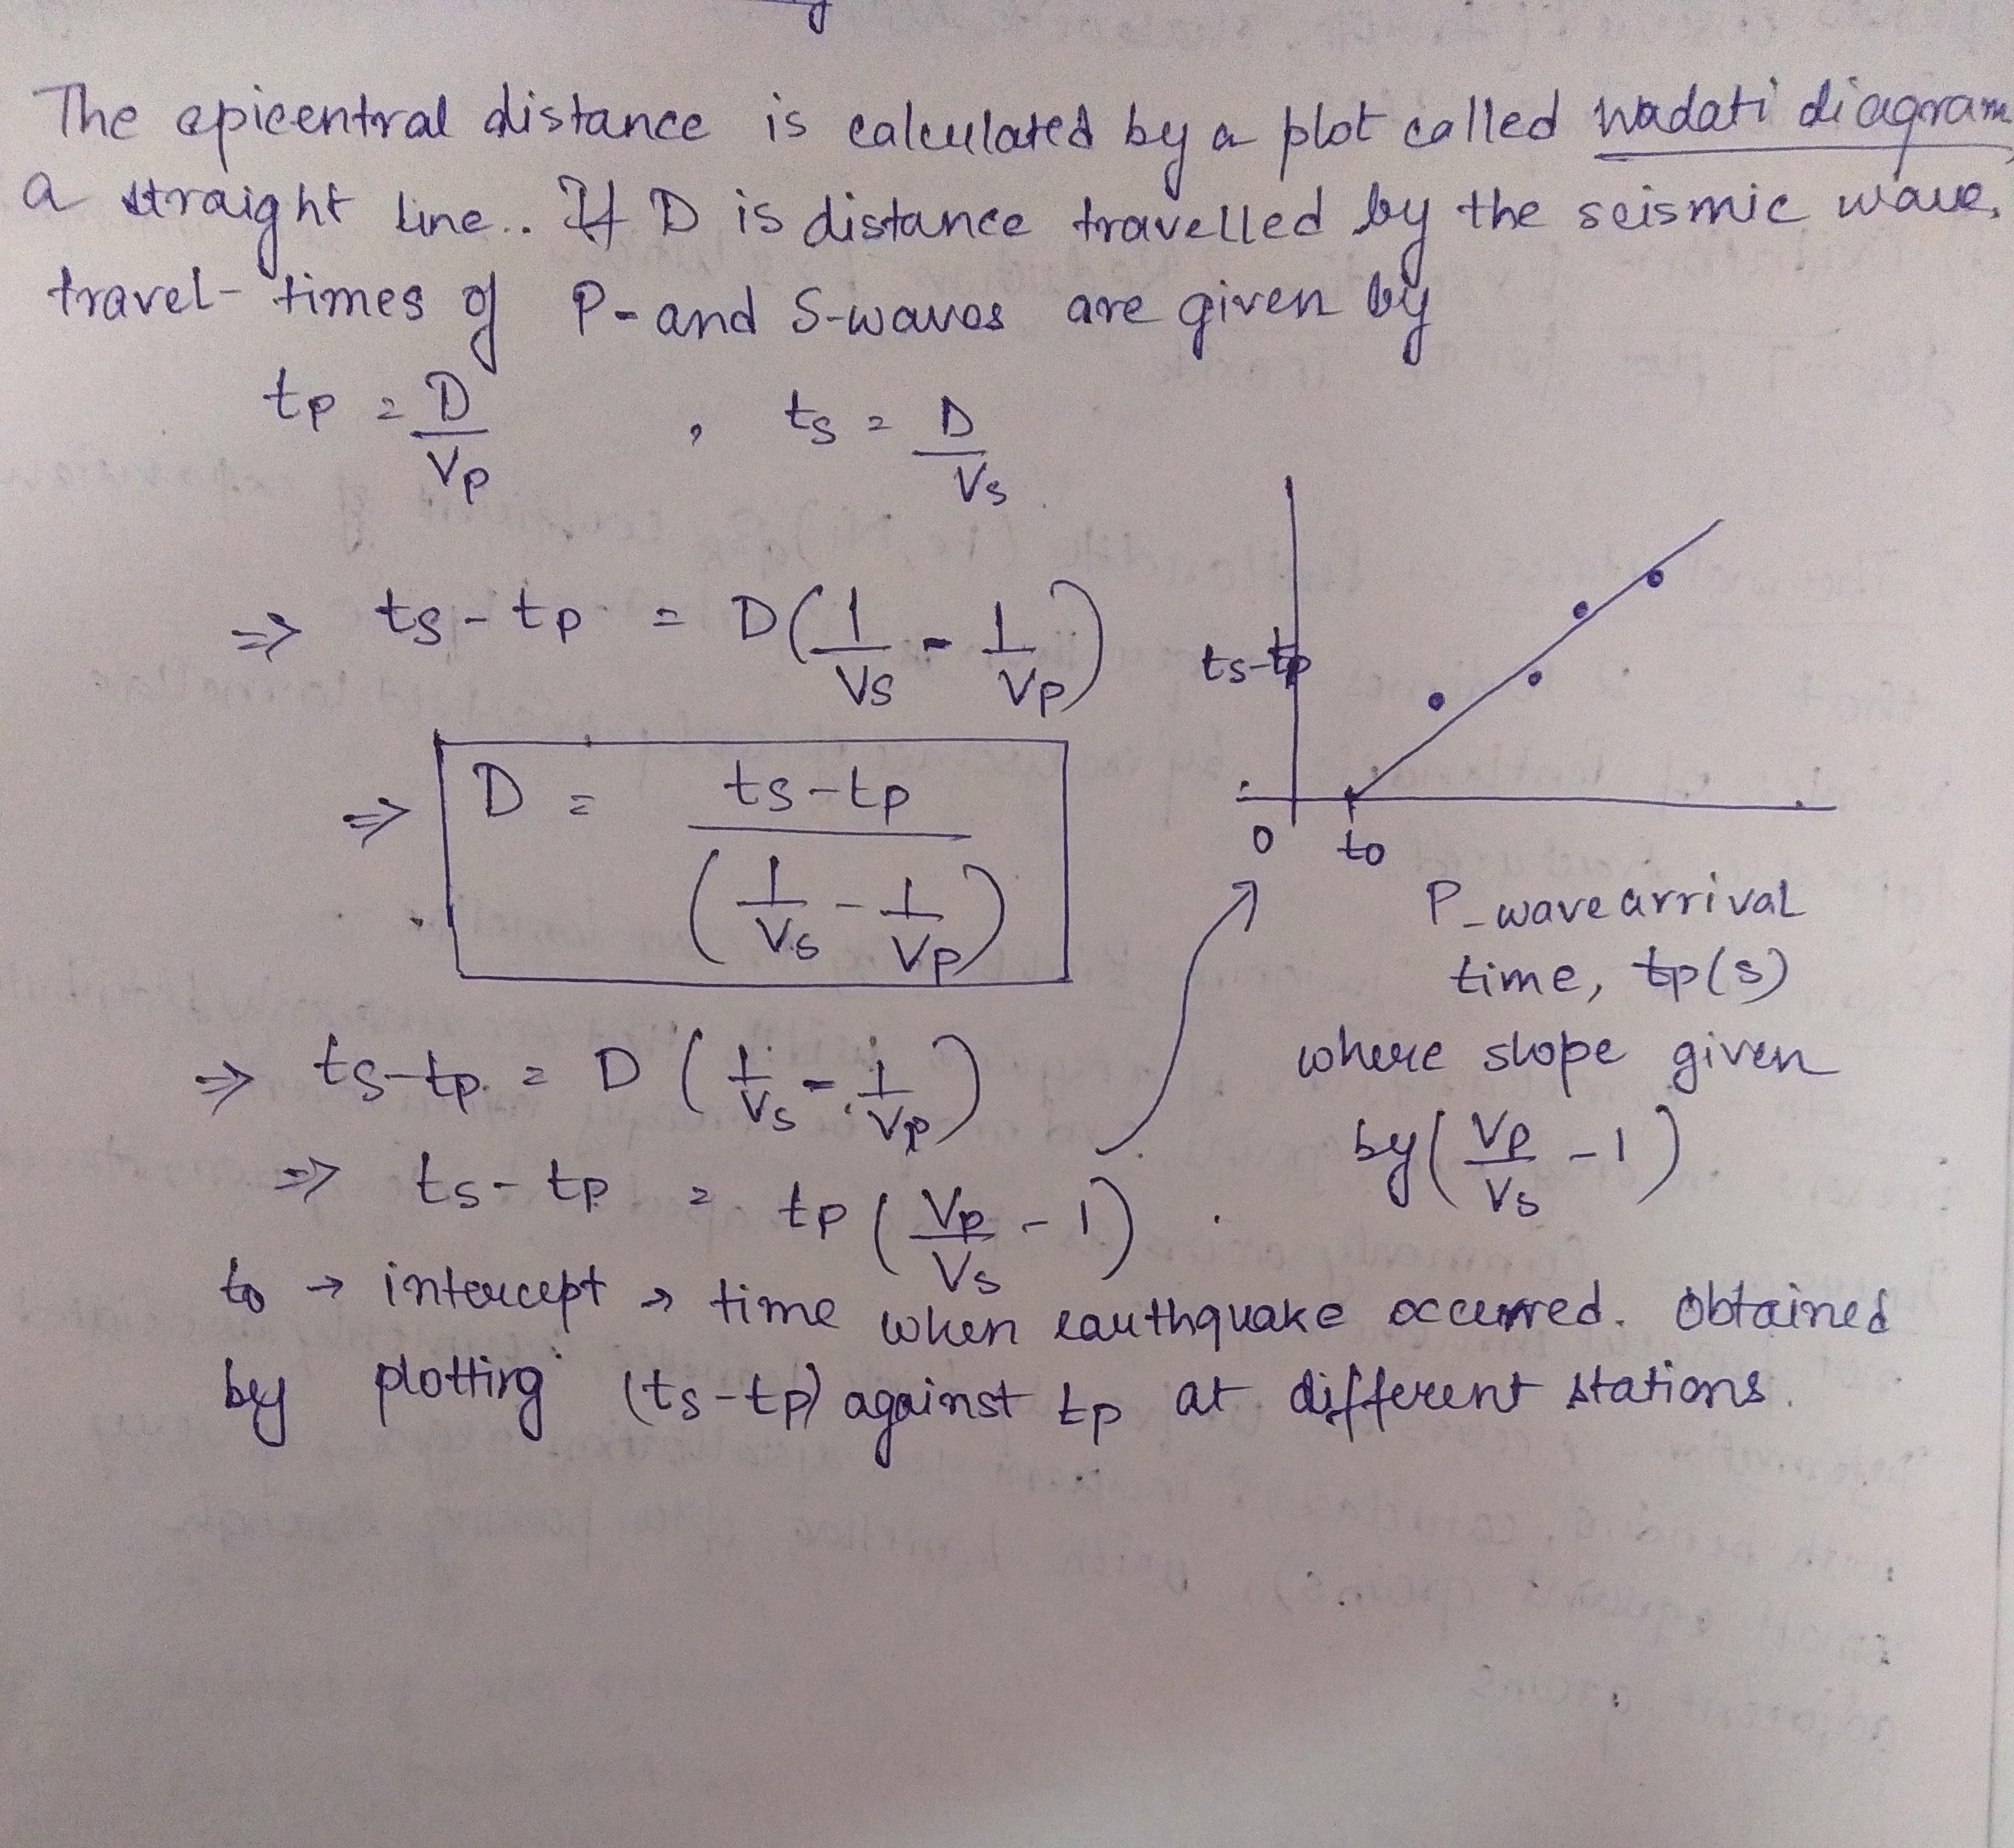 The epicentral distance is calculated by a plot called Wadati diagram,
a straight line.. If D is distance travelled by the seismic wave,
travel-times of P- and S-waves are given by
tp = D/Vp , ts = D/Vs
⇒ ts - tp = D(1/Vs - 1/Vp)
⇒ D = ts-tp / (1/Vs - 1/Vp)
⇒ ts-tp = D (1/Vs - 1/Vp)
⇒ ts - tp = tp (Vp/Vs - 1)
ts-tp
0 to
P-wave arrival
time, tp(s)
where slope given
by (Vp/Vs - 1)
to → intercept → time when earthquake occurred. Obtained
by plotting (ts-tp) against tp at different stations.